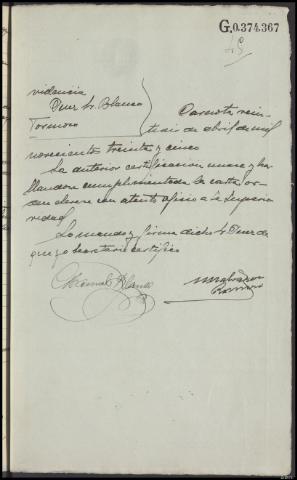 G.0.374.367
48
videncia
Juez Sr. Blanco
Tormoso
Carmona vein
tiseis de abril de mil
novecientos treinta y cinco
La anterior certificacion unase y ha
llandose cumplimentada la carta or
den elevese con atento oficio a la Superio
ridad
Lo mando y firma dicho Sr Juez de
que yo Secretario certifico
Blanco